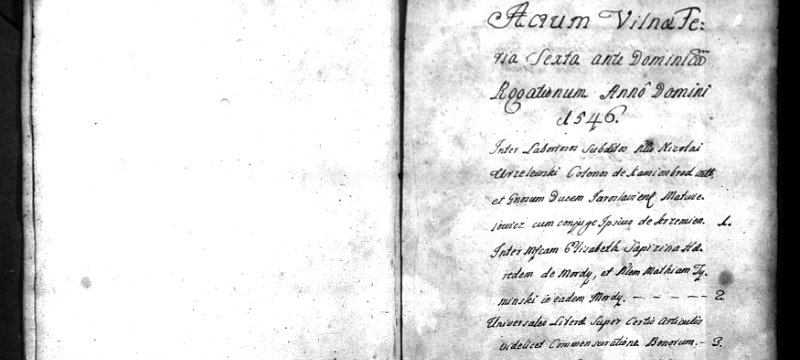 Actum Vilnæ Fe:
ria Sexta ante Dominicã
Rogationum Annô Domini
1546.
Inter Laboriosos Subditos Nicolai
Wrzelewski Colonos de Kamionbrod
et Gnosum Ducem Jaroslavienẽ Matwie
iowicz cum conjuge Ipsius de Krzemien. 1.
Inter Mficam Elizabeth Sapizina Hæ
redem de Mordy, et Nlem Mathiam Ty
minski in eadem Mordy. - - - - - 2
Universales Literæ Super Certis Articulis
videlicet Commensuratione Bonorum. - 3.